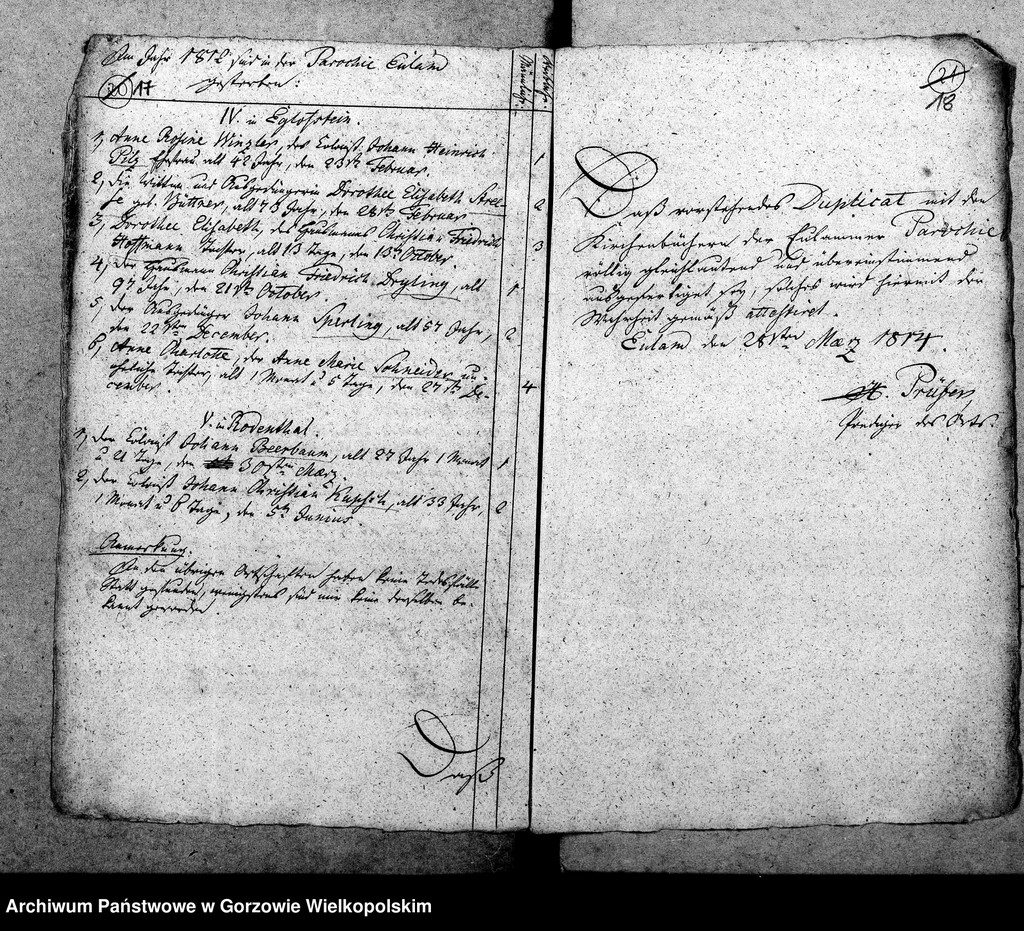 Im Jahr 1812 sind in der Parochie Eulam
gestorben:
20 17
Männlich.
Weiblich.
IV. in Eglofstein.
1, Anne Rosine Winzler, des Colonist. Johann Heinrich
Pilz Ehefrau alt 42 Jahr, den 23st Februar. 1
2, die Wittwe und Ausgedingerin Dorothee Elisabeth
geb. Büttner, alt 73 Jahr, den 28st Februar 2
3, Dorothee Elisabeth, des Hausmanns Christian Friedrich
Hoffmann Tochter, alt 13 Tage, den 13t October. 3
4, der Hausmann Christian Friedrich Dryling, alt
97 Jahr, den 21st October. 1
5, der Ausgedinger Johann Sperling, alt 57 Jahr,
den 22sten December. 2
6, Anne Charlotte, der Anne Marie Schneider un-
eheliche Tochter, alt 1 Monat u 5 Tage, den 27st De-
cember 4
V. in Rodenthal.
1, der Colonist Johann Beerbaum, alt 27 Jahr 1 Monat
u 21 Tage, den 30sten März 1
2, der Colonist Johann Christian Kupsch, alt 33 Jahr,
1 Monat u 6 Tage, den 5t Junius. 2
Anmerkung.
In den übrigen Ortschaften haben keine Todesfälle
Statt gefunden, wenigstens sind mir keine derselben be-
kannt geworden.
Daß
21
18
Daß vorstehendes Duplicat mit den
Kirchenbüchern der Eulammer Parochie
völlig gleichlautend und übereinstimmend
ausgefertiget sey, solches wird hiermit der
Wahrheit gemäß attestiret.
Eulam den 28sten März 1814.
Prüfer,
Prediger des Orts.
Archiwum Państwowe w Gorzowie Wielkopolskim